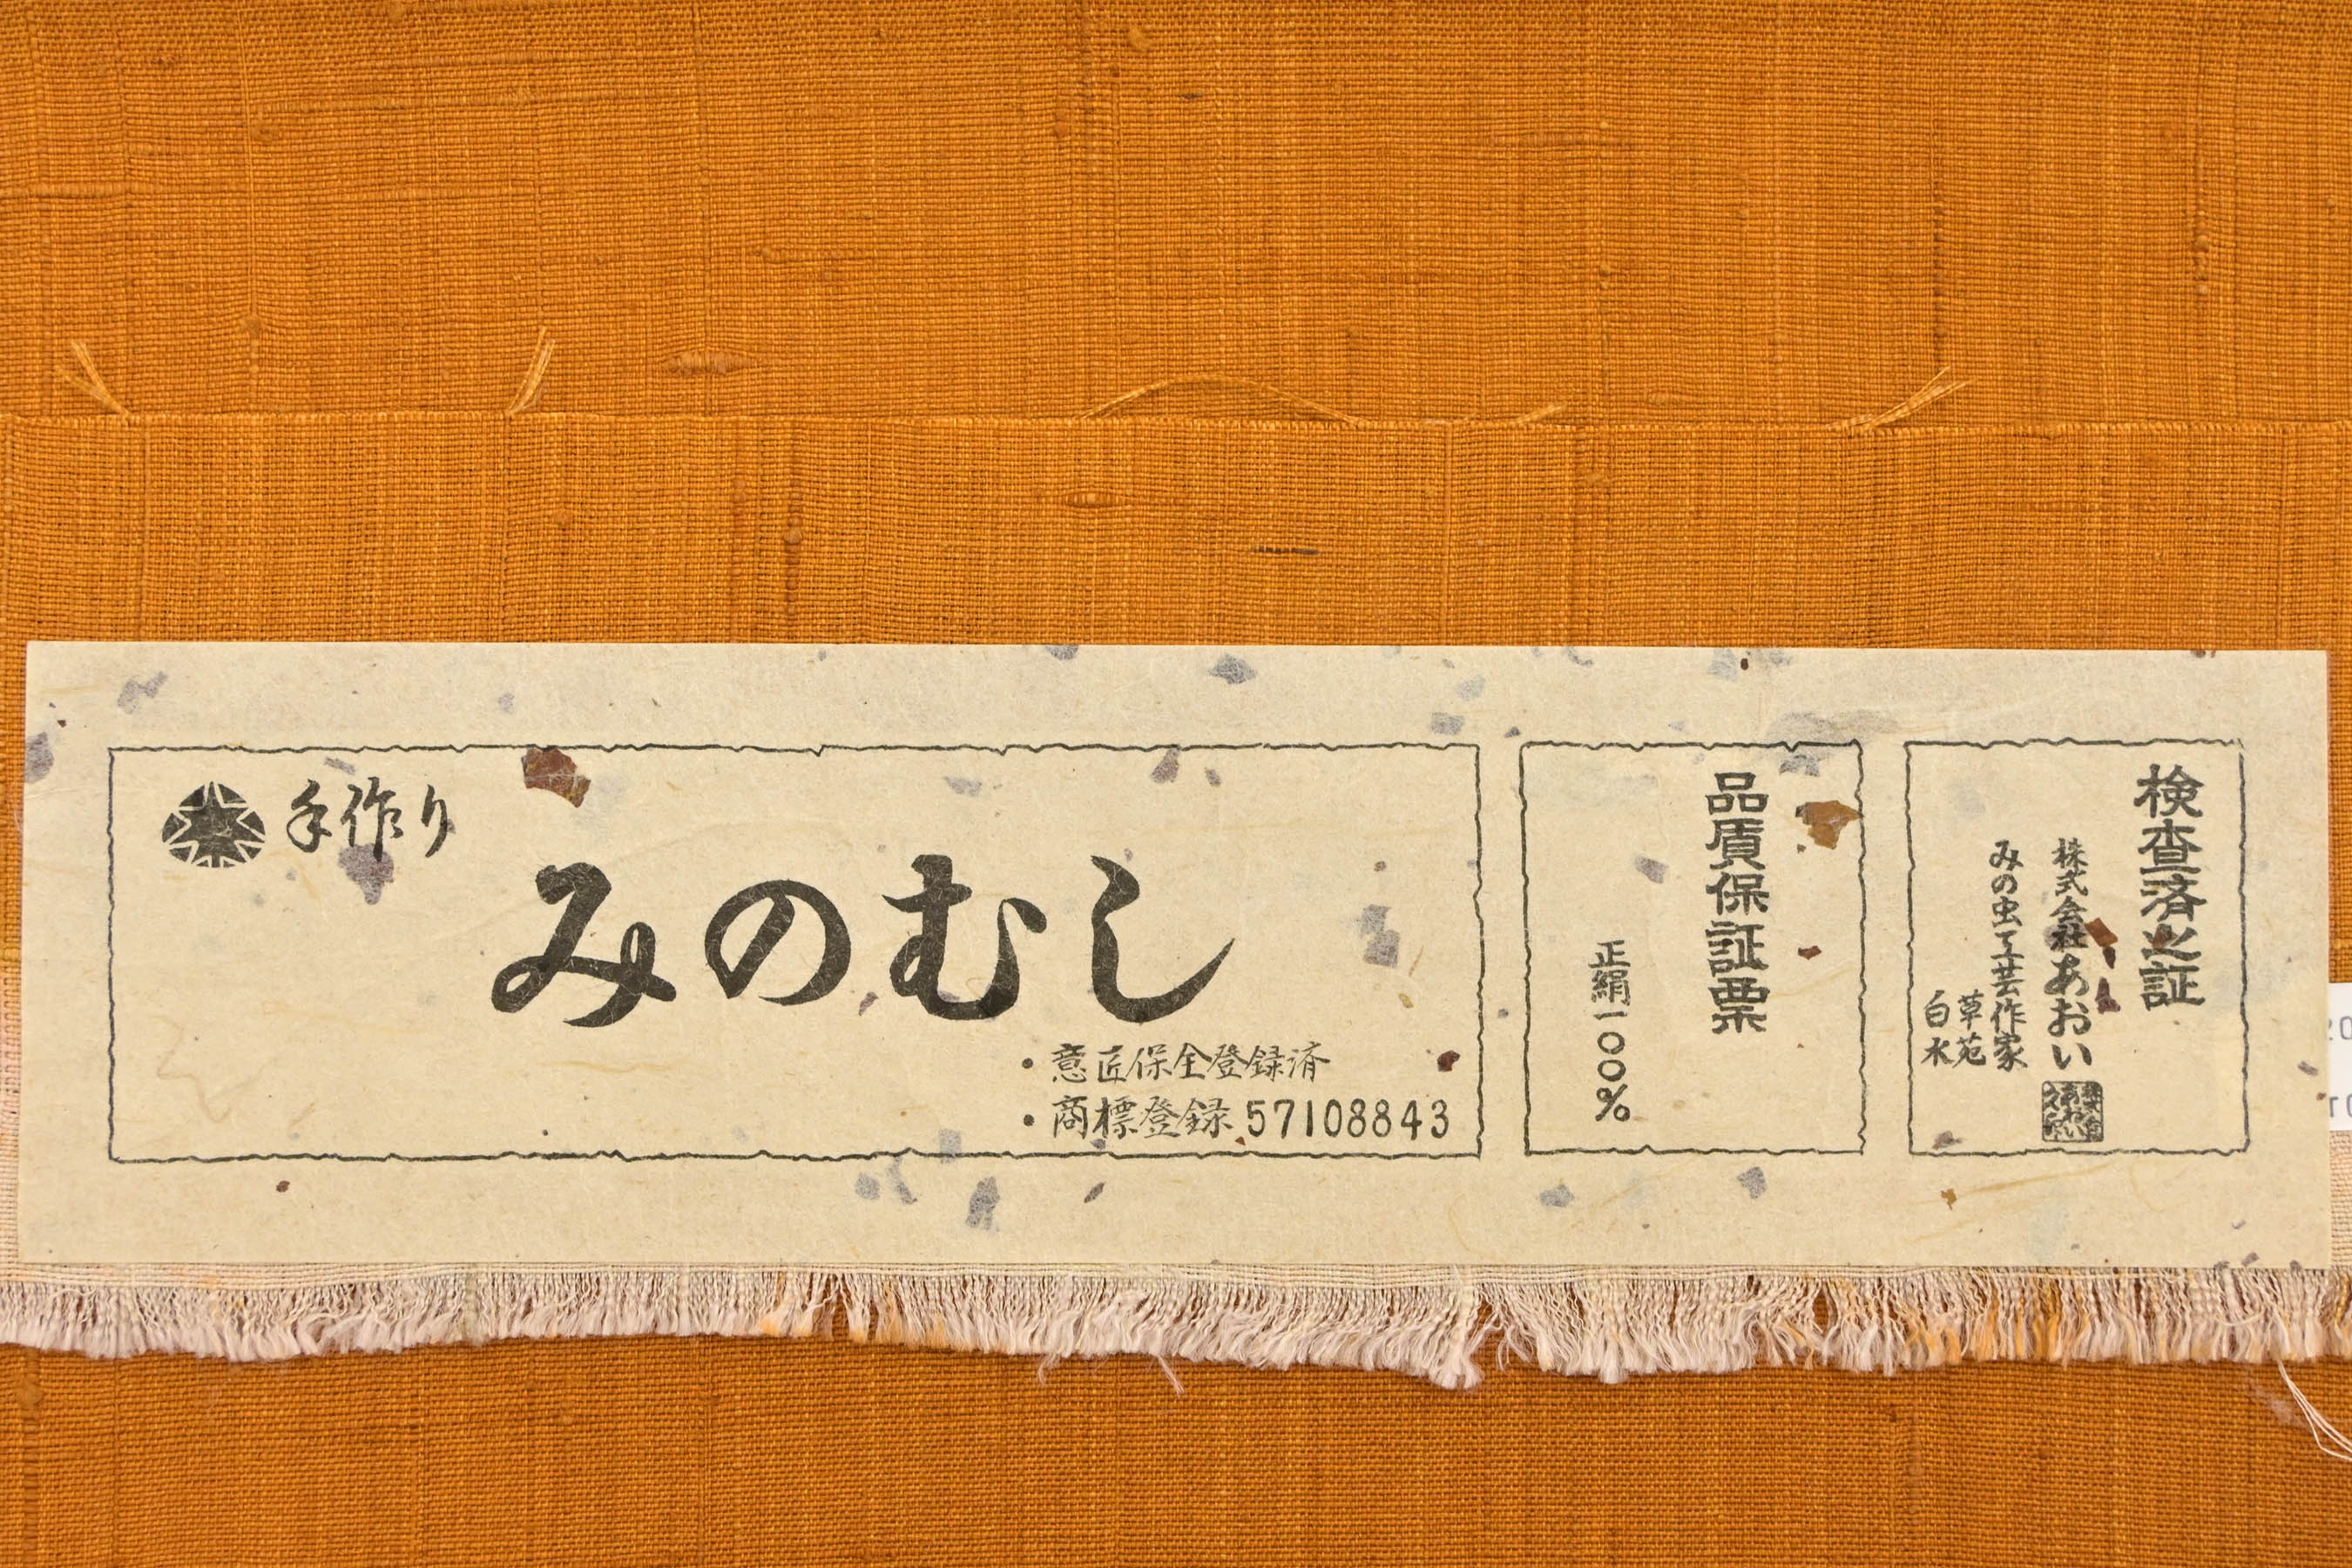 手作り
みのむし
・意匠保全登録済
・商標登録 57108843
品質保証票
正絹一〇〇%
検査済之証
株式会社あおい
みの虫工芸作家
草苑
白水